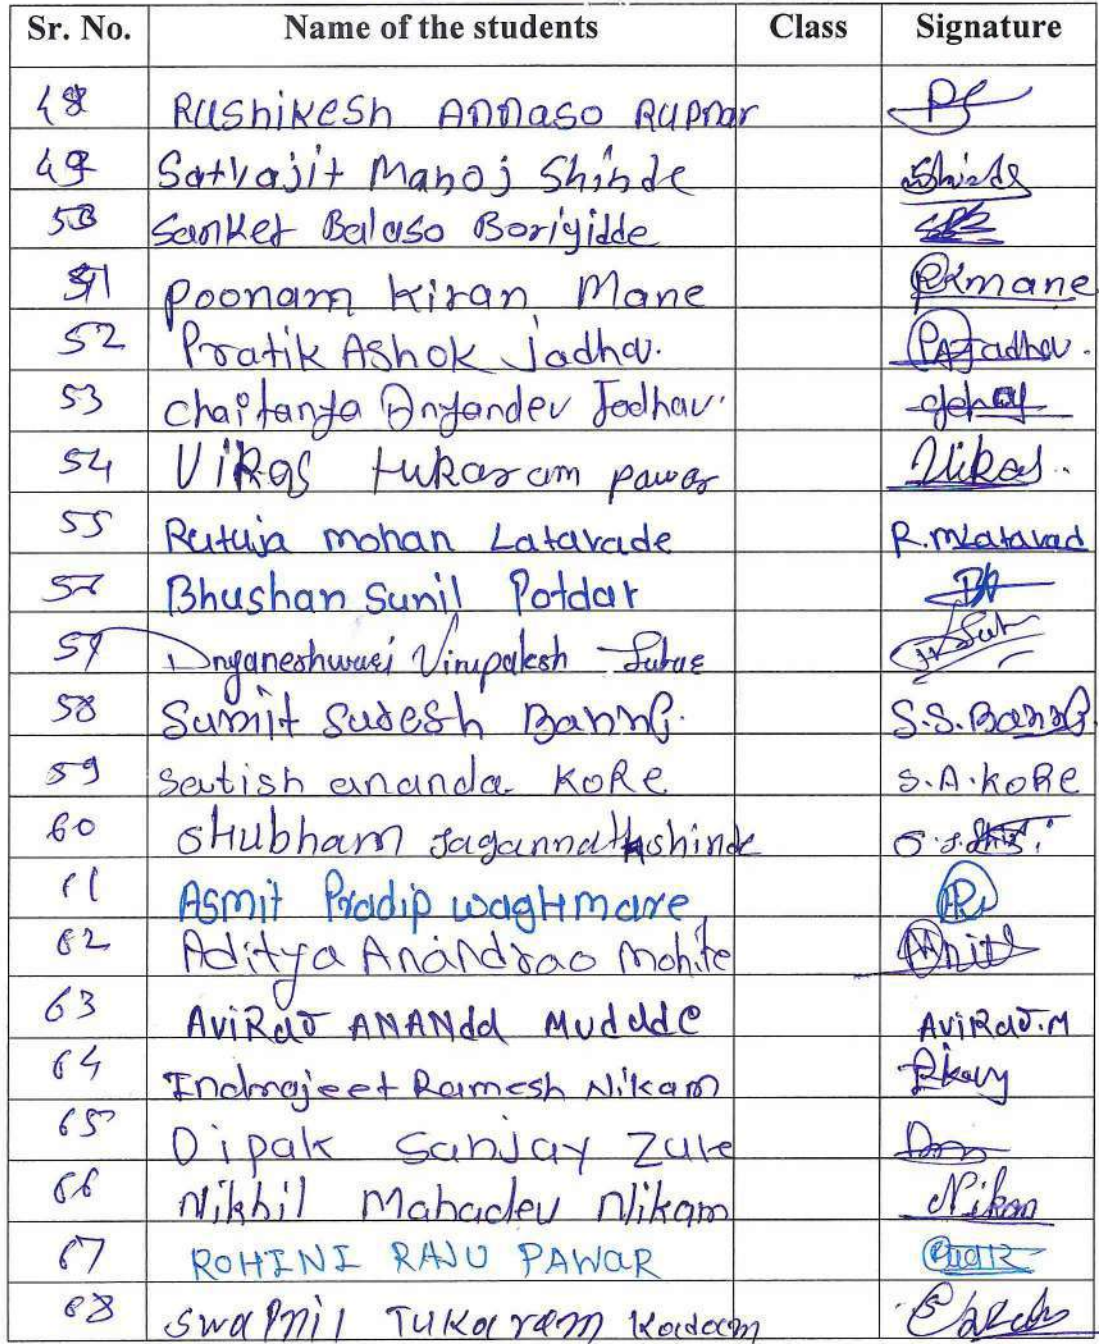 Sr. No. Name of the students Class Signature
48 Rushikesh Annaso Rupnar
49 Satvajit Manoj Shinde Shinde
50 Sanket Balaso Borigidde
51 Poonam Kiran Mane PKmane
52 Pratik Ashok Jadhav. PAJadhav.
53 Chaitanya Dnyandev Jadhav.
54 Vikas tukaram pawar Vikas.
55 Rutuja mohan Latavade R.mLatavad
57 Bhushan Sunil Potdar
57 Dnyaneshwari Virupaksh
58 Sumit Suresh S.S.
59 Satish ananda KoRe S.A.KoRe
60 SHubham Jagannathshinde
61 Asmit Pradip wagHmare
62 Aditya Anandrao Mohite
63 AviRaJ ANANdd Muddde AviRaJ.M
64 Indrajeet Ramesh Nikam
65 Dipak Sanjay Zule
66 Nikhil Mahadev Nikam Nikam
67 ROHINI RAJU PAWAR
68 Swapnil Tukaram Kadam